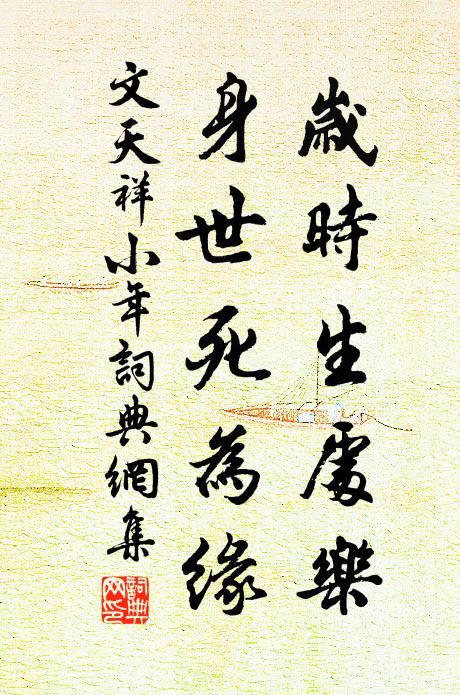 歲時生處樂
身世死為緣
文天祥小年詞典網集
詞典網印